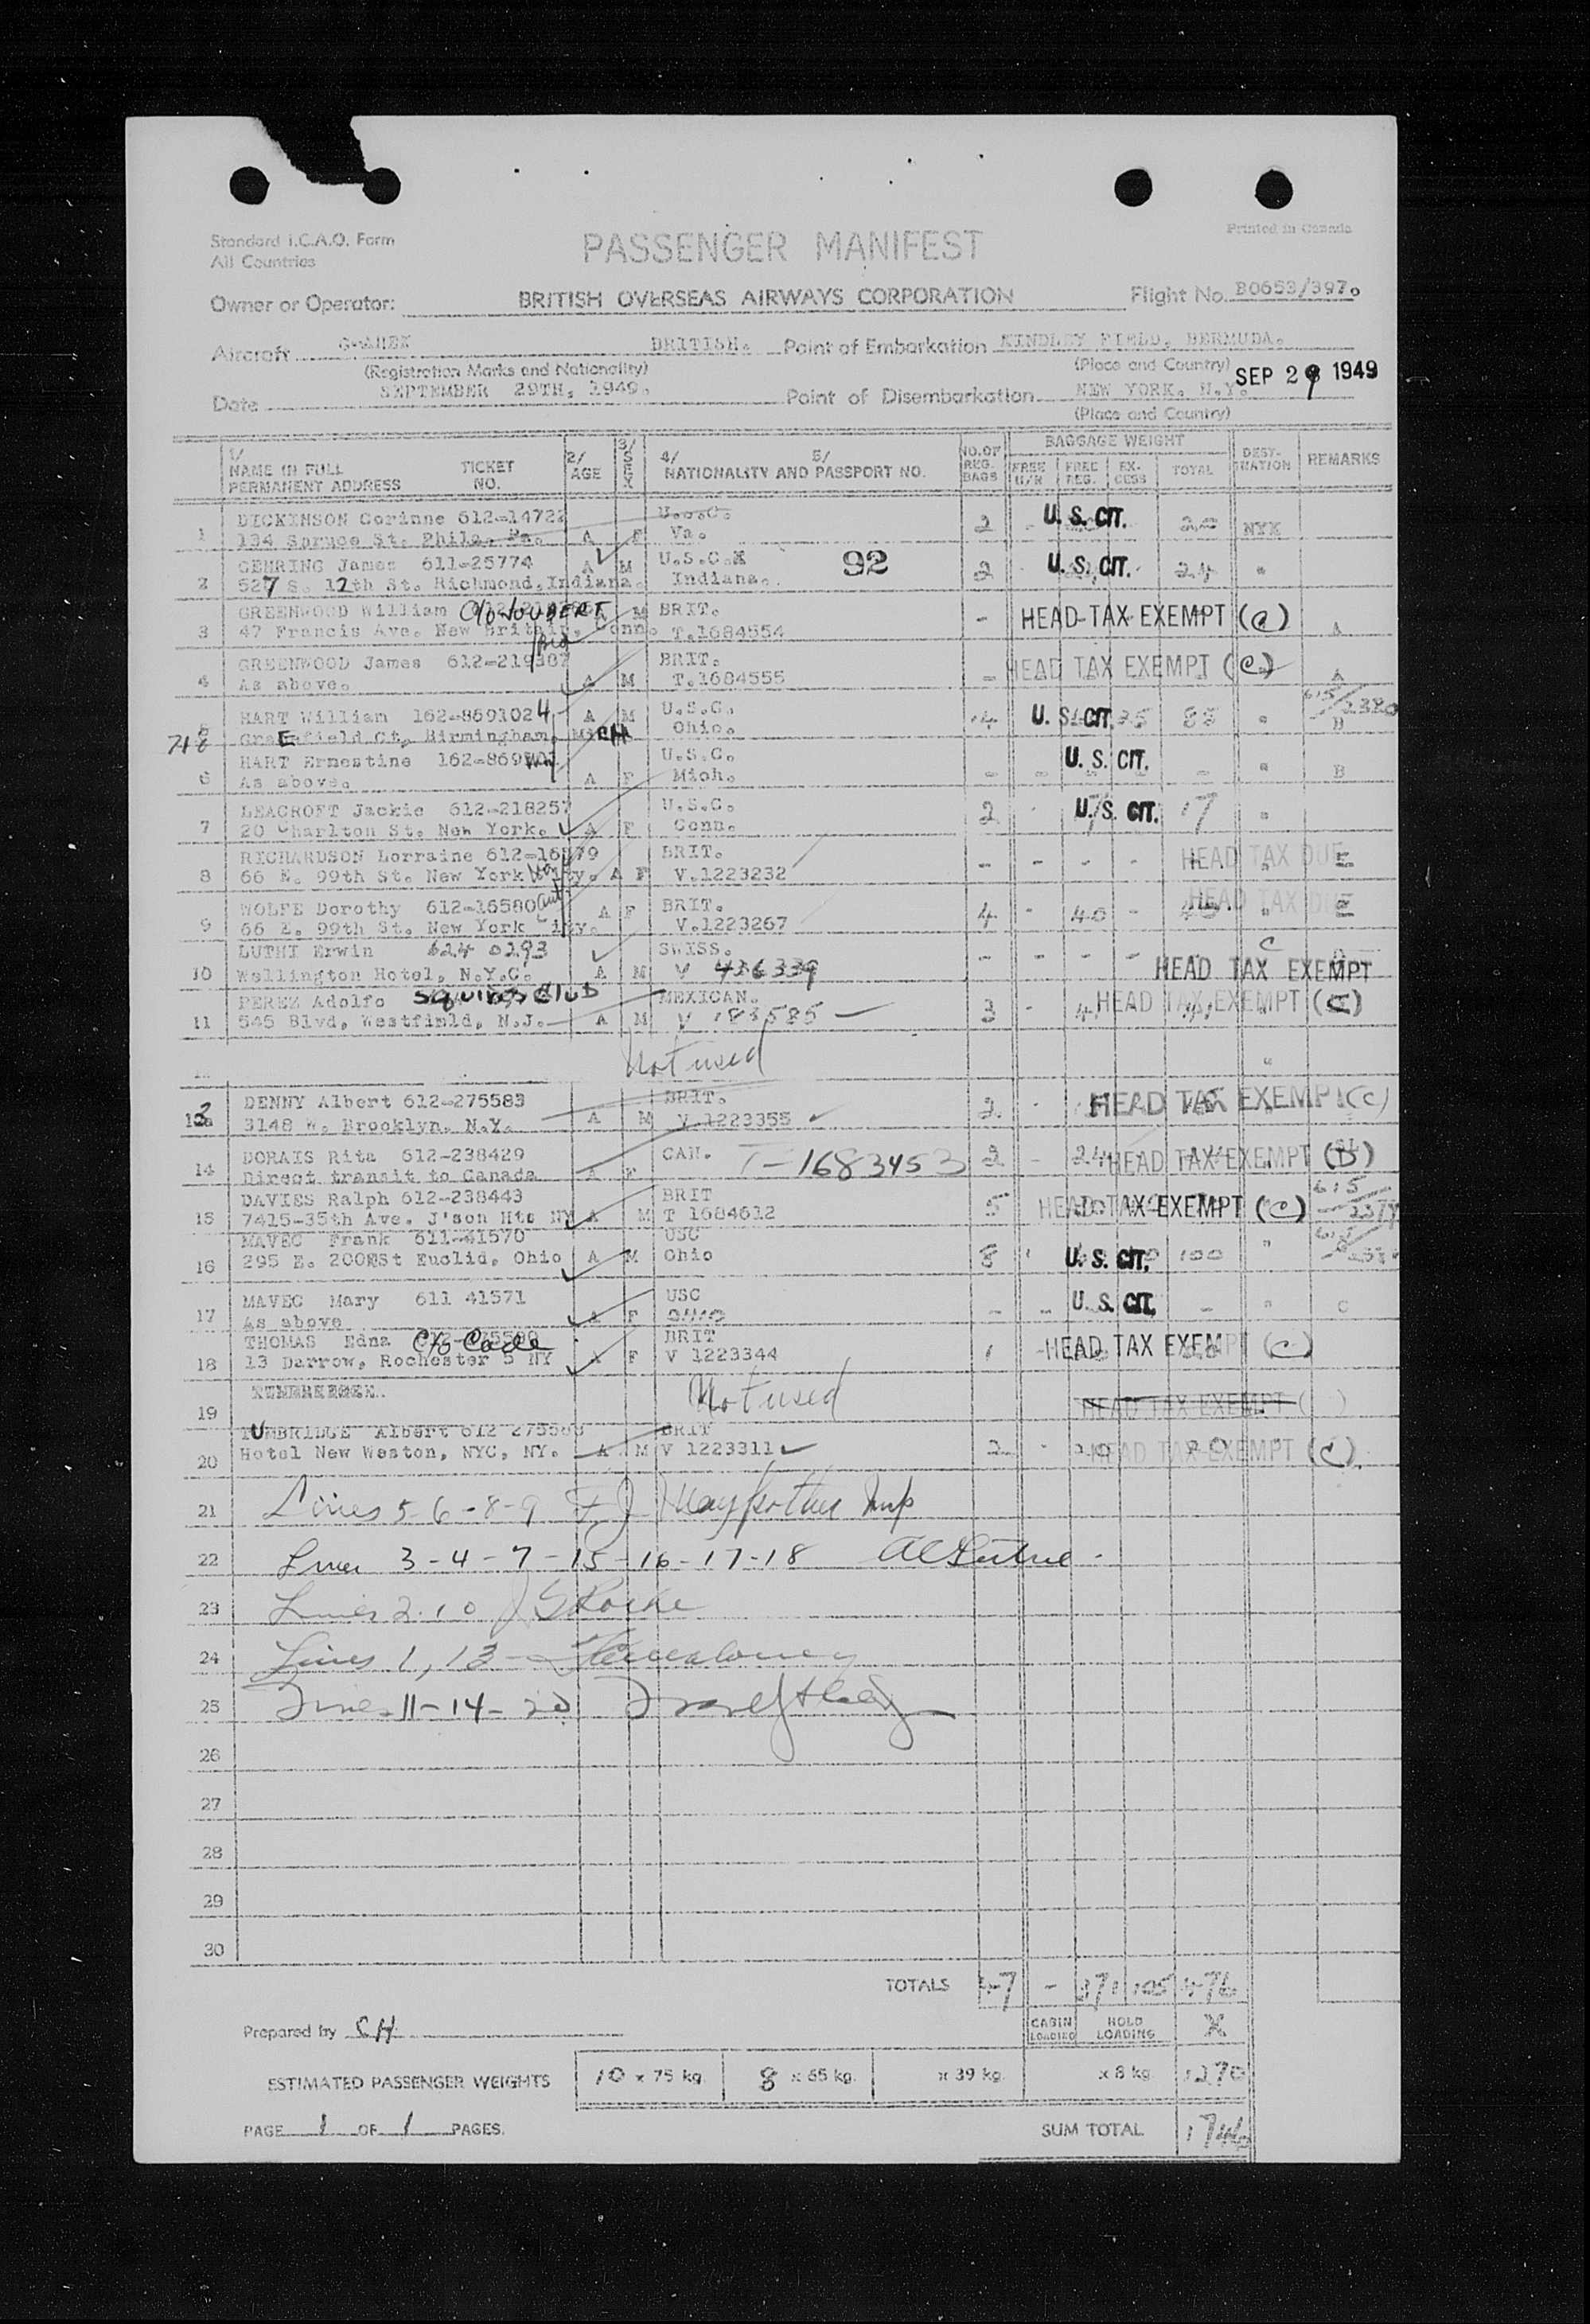 Standard I.C.A.O. Form
All Countries
PASSENGER MANIFEST
Printed in Canada
Owner or Operator: BRITISH OVERSEAS AIRWAYS CORPORATION Flight No. B0653/397.
Aircraft BRITISH. Point of Embarkation KINDLEY FIELD, BERMUDA.
(Registration Marks and Nationality) (Place and Country)
Date SEPTEMBER 29TH, 1949. Point of Disembarkation NEW YORK. N.Y. SEP 29 1949
(Place and Country)
1/ NAME IN FULL PERMANENT ADDRESS TICKET NO. 2/ AGE 3/ SEX 4/ 5/ NATIONALITY AND PASSPORT NO. NO. OF REG. BAGS BAGGAGE WEIGHT FREE U/R FREE REG. EX-CESS TOTAL DEST-INATION REMARKS
DICKINSON Corinne 612-14722 U.S.C. 2 - U. S. CIT. 20 NYK
1 134 Spruce St. Phila. Pa. A F Va.
GEHRING James 611-25774 A M U.S.C. 92 2 - U. S. CIT. 24 "
2 527 S. 12th St. Richmond, Indiana. Indiana.
GREENWOOD William C/o JOUBERT M BRIT. - HEAD TAX EXEMPT (C)
3 47 Francis Ave. New Britain, Conn. T.1684554 A
GREENWOOD James 612-219387 BRIT. - HEAD TAX EXEMPT (C)
4 As above. A M T.1684555 A
HART William 162-8691024 A M U.S.C. 4 U. S. CIT. 35 85 " 615/2380
5 718 Graefield Ct, Birmingham, MiCH Ohio. B
HART Ernestine U.S.C. U. S. CIT.
6 As above. A F Mich. - - - " B
LEACROFT Jackie 612-218257 U.S.C. 2 - U. S. CIT. 17 "
7 20 Charlton St. New York. A F Conn.
RICHARDSON Lorraine 612-16579 BRIT. - - - - HEAD TAX DUE
8 66 E. 99th St. New York City. A F V.1223232 E
WOLFE Dorothy 612-16580 A F BRIT. 4 - 40 - 40 HEAD TAX DUE
9 66 E. 99th St. New York City. V.1223267 E
LUTHI Erwin 624 0293 SWISS. - - - - C
10 Wellington Hotel, N.Y.C. A M V 436339 HEAD TAX EXEMPT
PEREZ Adolfo SQUIRES CLUB MEXICAN. 3 - HEAD TAX EXEMPT (C)
11 545 Blvd, Westfield, N.J. A M V 183585
Not used "
DENNY Albert 612-275583 BRIT. 2 - HEAD TAX EXEMPT (C)
13 3148 W. Brooklyn. N.Y. A M V 1223355
DORAIS Rita 612-238429 CAN. T-1683453 2 - 24 HEAD TAX EXEMPT (D)
14 Direct transit to Canada A F
DAVIES Ralph 612-238443 BRIT 5 HEAD TAX EXEMPT (C) 615/
15 7415-35th Ave. J'son Hts NY A M T 1684612
MAVEC Frank 611-41570 USC 8 U. S. CIT. 100 "
16 295 E. 200 St Euclid, Ohio A M Ohio
MAVEC Mary 611 41571 USC - - U. S. CIT. - " C
17 As above A F OHIO
THOMAS Edna C/o Cade BRIT 1 - HEAD TAX EXEMPT (C)
18 13 Darrow, Rochester 5 NY A F V 1223344
19 Not used HEAD TAX EXEMPT ( )
TUMBRIDGE Albert 612 BRIT 2 - 20 20 HEAD TAX EXEMPT (C).
20 Hotel New Weston, NYC, NY. A M V 1223311
21 Lines 5-6-8-9
22 Lines 3-4-7-15-16-17-18
23 Lines 2-10
24 Lines 1, 13 -
25 Lines 11-14-20
26
27
28
29
30
TOTALS 47 - 371 105 476
Prepared by CH CABIN LOADING HOLD LOADING X
ESTIMATED PASSENGER WEIGHTS 10 x 75 kg. 8 x 65 kg. x 39 kg. x 8 kg. 1270
PAGE 1 OF 1 PAGES. SUM TOTAL 1746